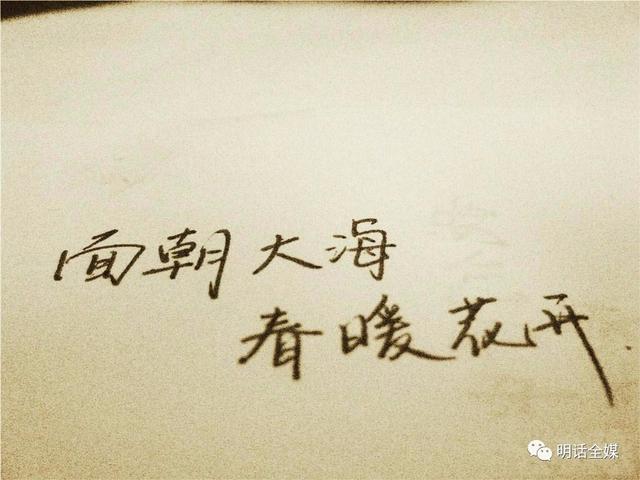 面朝大海
春暖花开
明话全媒